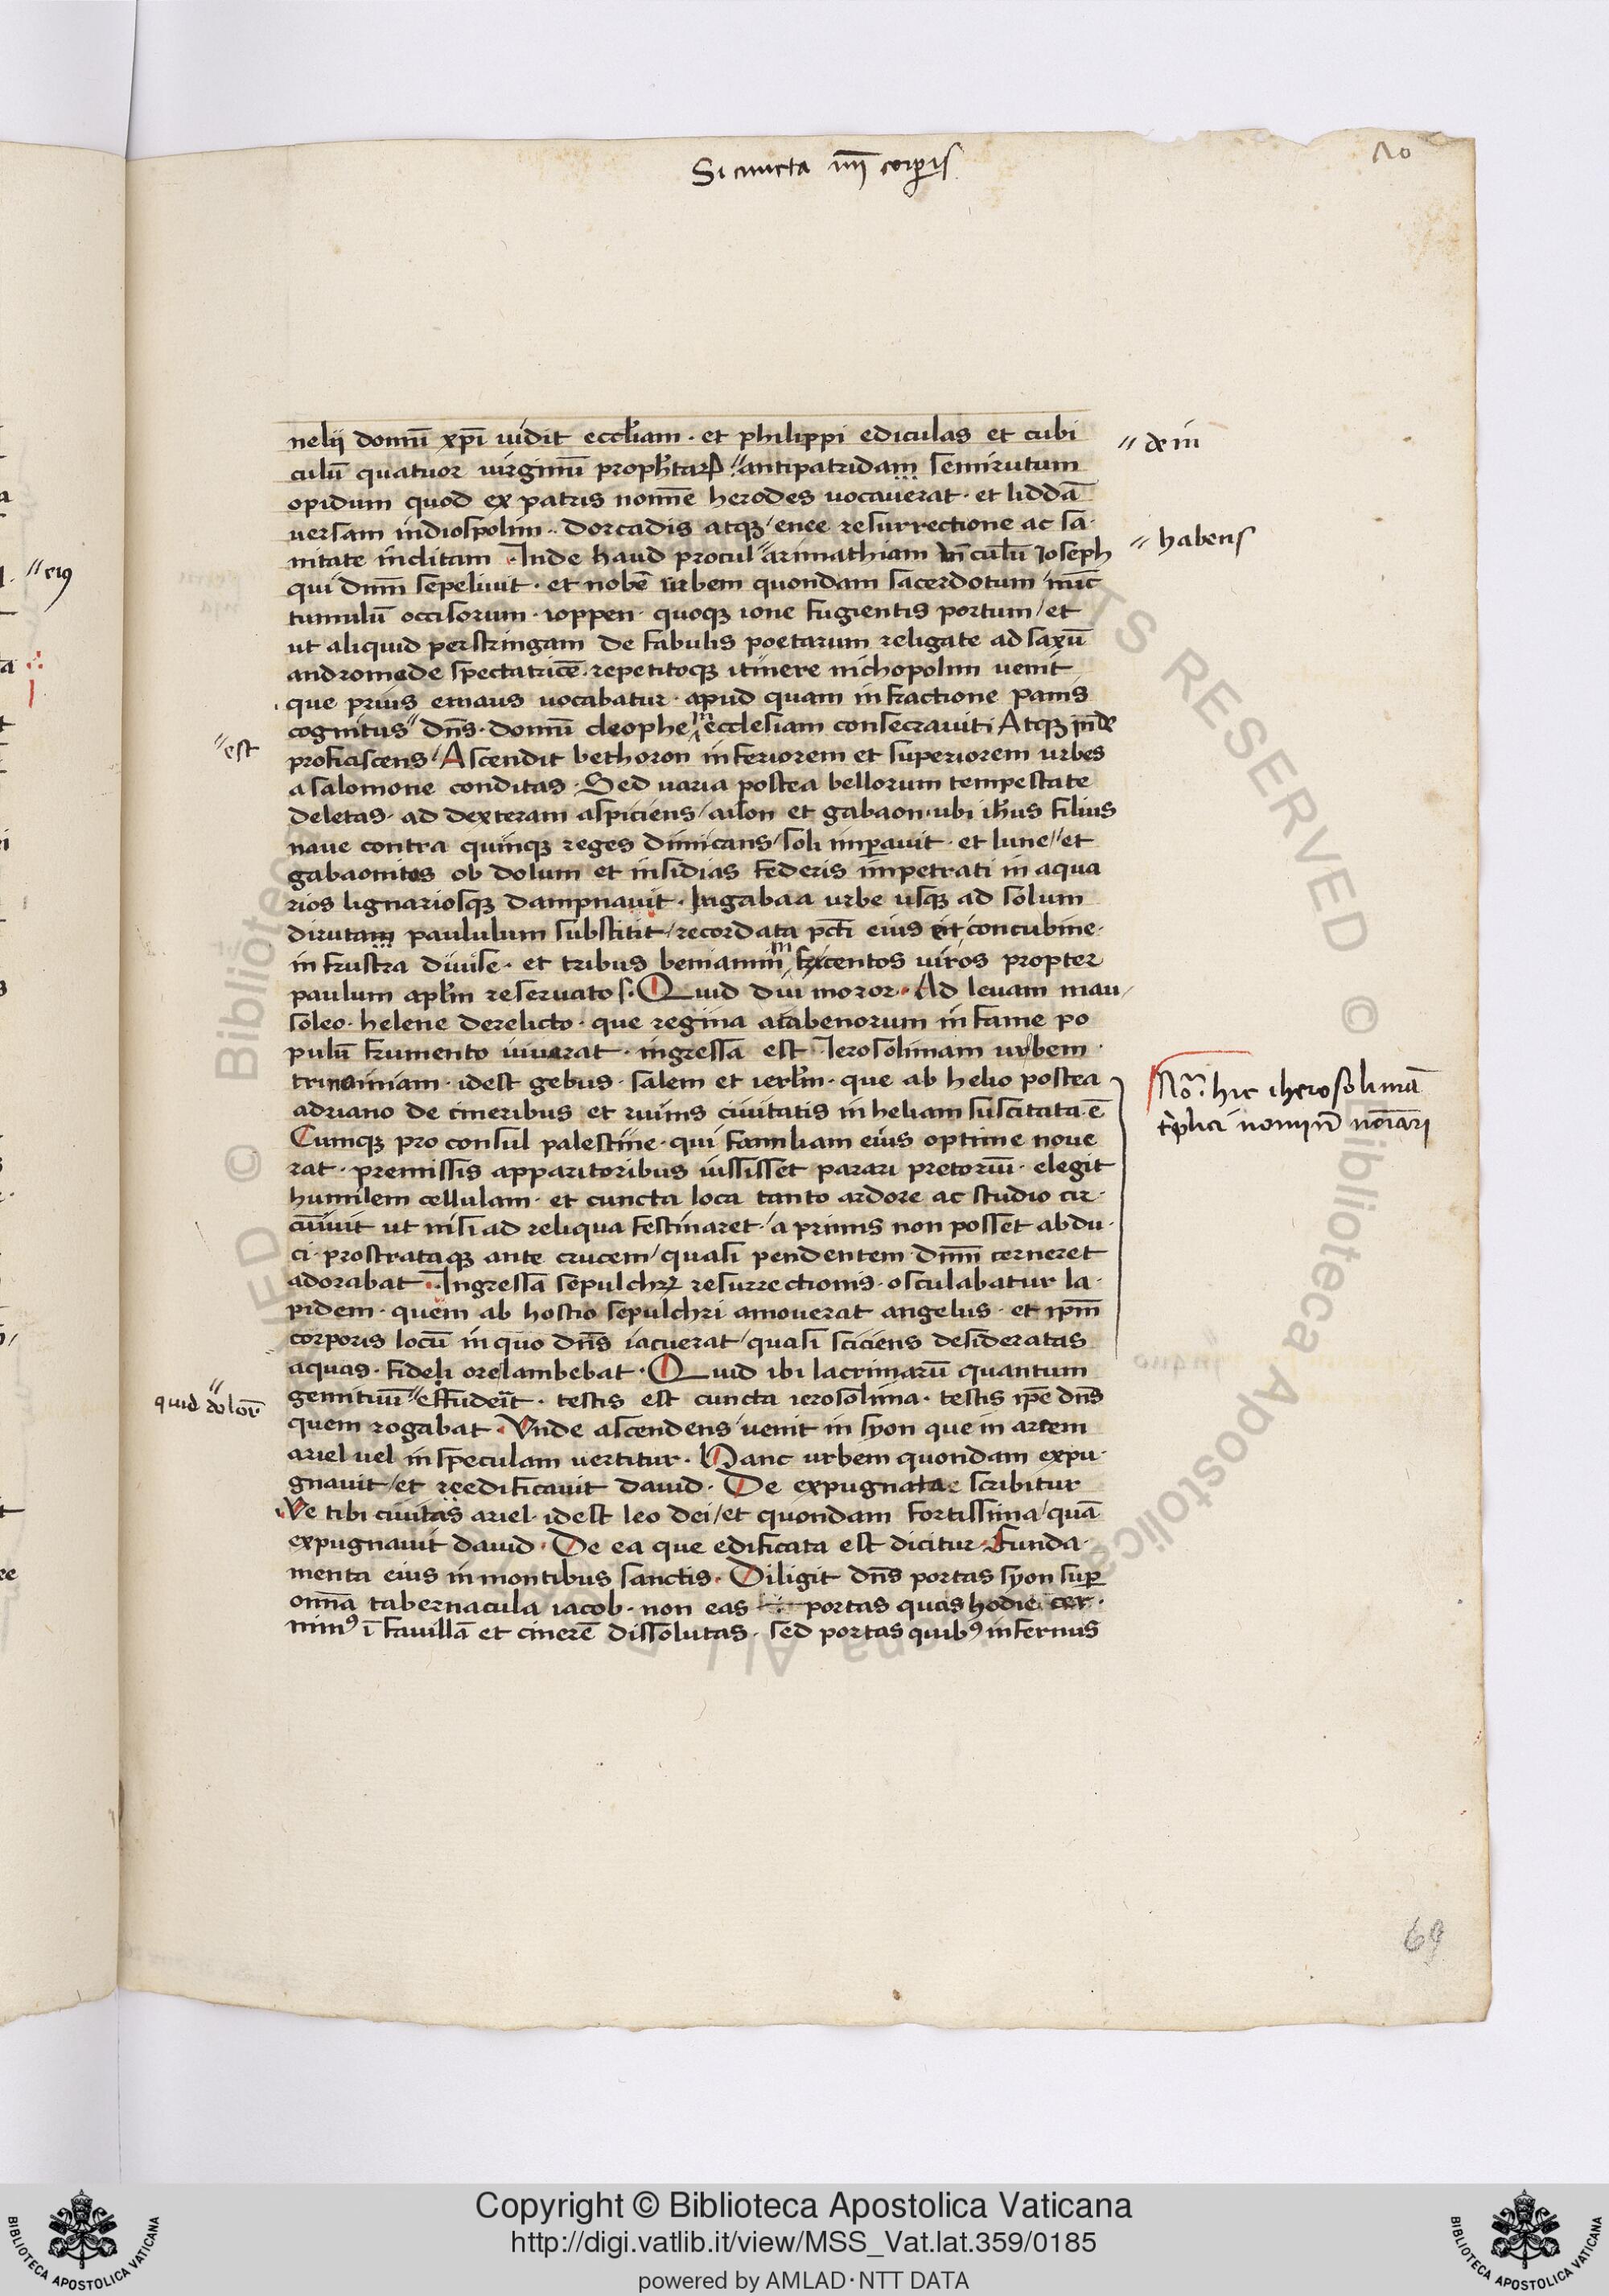 Si cuncta mĩ corꝑis
10
nelij domũ xp̃i uidit eccl̃iam · et philippi ediculas et cubi
culũ quatuor uirginũ proph̃tarꝝ · // antipatridam semirutum
opidum quod ex patris nomĩe herodes uocauerat · et liddã
uersam indiospolim · dorcadis atqꝫ / enee resurrectione ac sa·
nitate inclitam · Inde haud procul // arimathiam uĩculũ Ioseph
qui dñm sepeliuit · et nobẽ urbem quondam sacerdotum / nũc
tumulũ occisorum · ioppen · quoqꝫ ione fugientis portum / et
ut aliquid perstringam de fabulis poetarum religate ad saxũ
andromede spectatricẽ · repetitoqꝫ itinere nichopolim uenit
que prius emaus uocabatur · apud quam in fractione panis
cognitus // dñs · domũ cleophe in ecclesiam consecrauit · Atqꝫ inde
proficiscens / Ascendit bethoron inferiorem et superiorem urbes
a salomone conditas · Sed uaria postea bellorum tempestate
deletas · ad dexteram aspiciens / ailon et gabaon · ubi ih̃us filius
naue contra quinqꝫ reges dimicans / soli imꝑauit · et lune / et
gabaonitas ob dolum et insidias federis impetrati in aqua
rios lignariosqꝫ dampnauit · In gabaa urbe usqꝫ ad solum
dirutam paululum substitit / recordata pcti eius et concubine·
in frustra diuise · et tribus beniamin tricentos uiros propter
paulum apl̃m reseruatos · Quid diu moror · Ad leuam mau/
soleo · helene derelicto · que regina atabenorum in fame po
pulũ frumento iuuerat · ingressa est Ierosolimam urbem ·
trinomiam · idest gebus · salem et ierl̃m · que ab helio postea
adriano de cineribus et ruinis ciuitatis in heliam suscitata ẽ
Cumqꝫ pro consul palestine · qui familiam eius optime noue
rat · premissis apparitoribus iussisset parari pretoriũ · elegit
humilem cellulam · et cuncta loca tanto ardore ac studio cir·
cũiuit ut nisi ad reliqua festinaret · a primis non posset abdu·
ci · prostrataqꝫ ante crucem / quasi pendentem dñm cerneret
adorabat · Ingressa sepulchrꝝ resurrectionis · osculabatur la·
pidem · quem ab hostio sepulchri amouerat angelus · et ip̃m
corporis locũ in quo dñs iacuerat / quasi sciciens desideratas
aquas · fideli ore lambebat · Quid ibi lacrimarũ quantum
gemituũ // effuderĩt · testis est cuncta ierosolima · testis ip̃e dñs
quem rogabat · Vnde ascendens / uenit in syon que in arcem
ariel uel in speculam uertitur · Hanc urbem quondam expu·
gnauit / et reedificauit dauid · De expugnata scribitur
Ve tibi ciuitas ariel · idest leo dei / et quondam fortissima / quã
expugnauit dauid · De ea que edificata est dicitur · Funda·
menta eius in montibus sanctis · Diligit dñs portas syon suꝑ
omña tabernacula iacob · non eas portas quas hodie cer·
nimꝰ ĩ fauillã et cinerẽ dissolutas · sed portas quibꝰ infernus
// dein
// habens
// eiꝰ
// est
Nõ. hic iherosolimã
tp̃lici nomiñ noĩari
quid dolorẽ
69
Copyright © Biblioteca Apostolica Vaticana
http://digi.vatlib.it/view/MSS_Vat.lat.359/0185
powered by AMLAD·NTT DATA
BIBLIOTECA APOSTOLICA VATICANA
BIBLIOTECA APOSTOLICA VATICANA